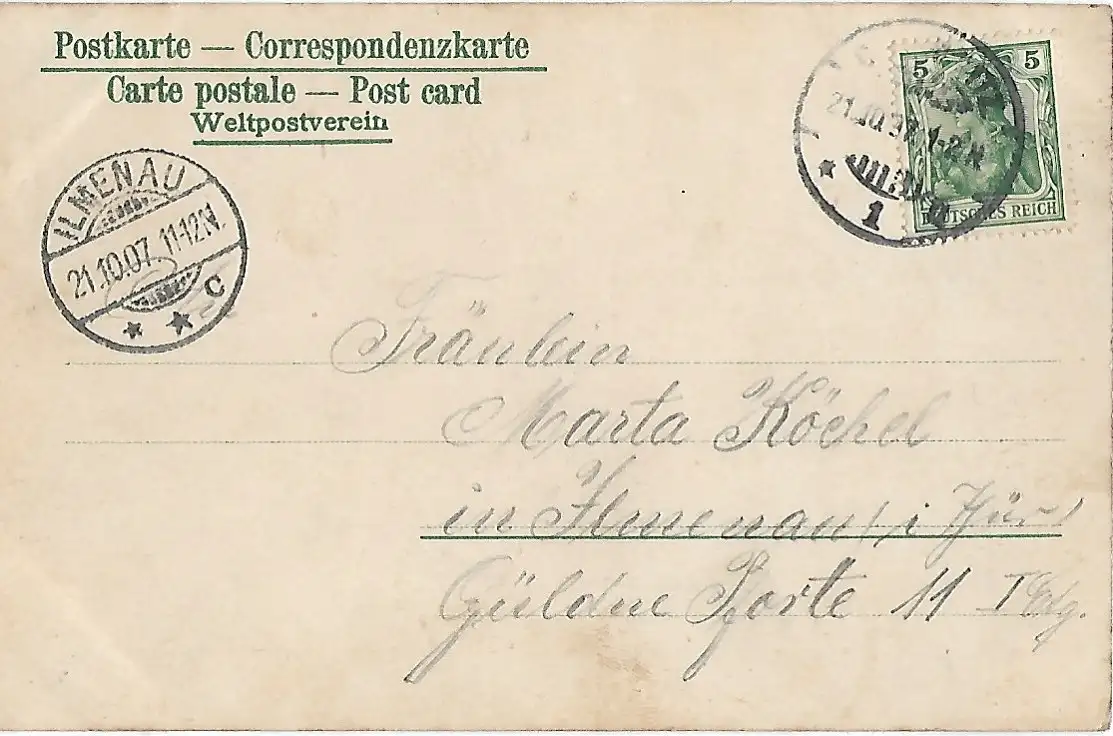 Postkarte — Correspondenzkarte
Carte postale — Post card
Weltpostverein
5 5
DEUTSCHES REICH
21.10.07. 1-2 N
1
ILMENAU
21.10.07. 11-12 N.
C
Fräulein
Marta Köchel
in Ilmenau (i Thür)
Güldne Pforte 11 I Etg.